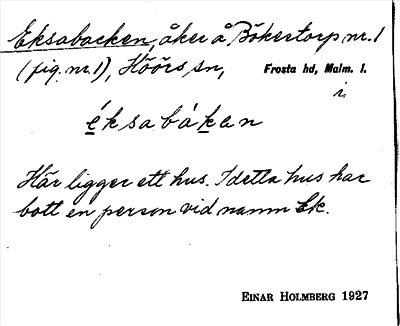 Eksabacken, åker å Bökestorp nr. 1
(fig. nr. 1), Höörs sn, Frosta hd, Malm. l.
i
éksabákan
Här ligger ett hus. I detta hus har
bott en person vid namn Ek.
EINAR HOLMBERG 1927